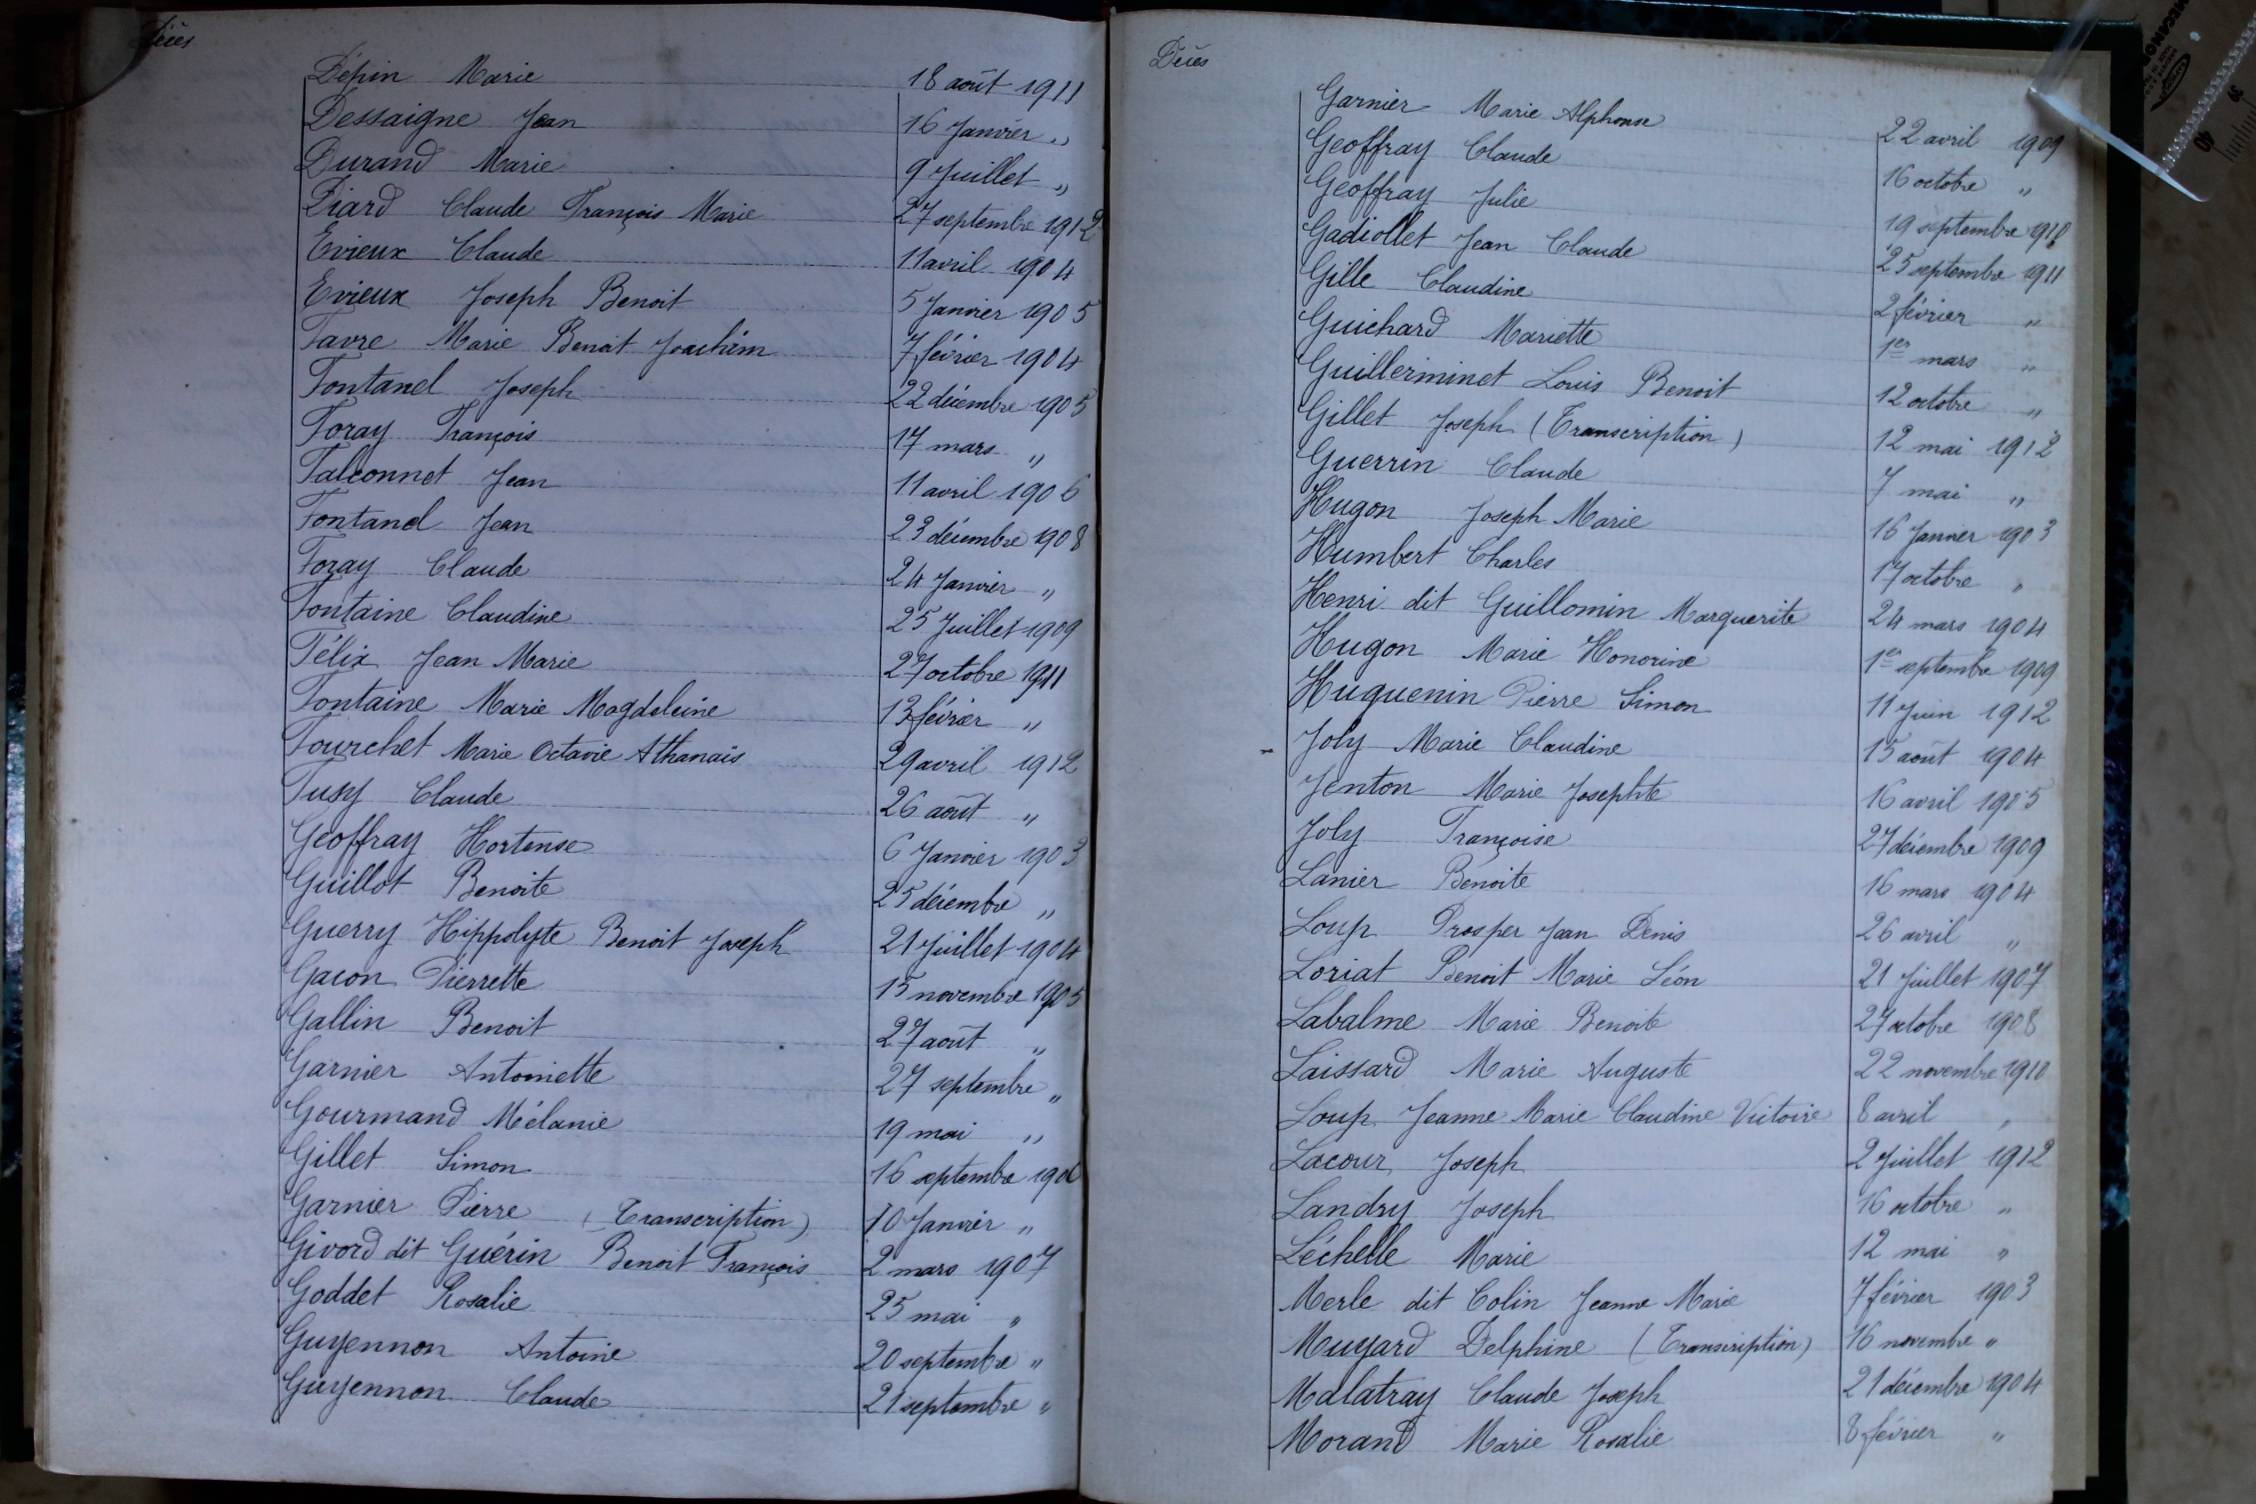 Décès
Dépin Marie 18 août 1911
Dessaigne Jean 16 Janvier "
Durand Marie 9 Juillet "
Diard Claude François Marie 27 septembre 1912
Evieux Claude 11 avril 1904
Evieux Joseph Benoit 5 Janvier 1905
Favre Marie Benoit Joachim 7 février 1904
Fontanel Joseph 22 décembre 1905
Foray François 17 mars "
Falconnet Jean 11 avril 1906
Fontanel Jean 23 décembre 1908
Foray Claude 24 Janvier "
Fontaine Claudine 25 Juillet 1909
Félix Jean Marie 27 octobre 1911
Fontaine Marie Magdeleine 13 février "
Fourchet Marie Octavie Athanaïs 29 avril 1912
Fusy Claude 26 août "
Geoffray Hortense 6 Janvier 1903
Guillot Benoite 25 décembre "
Guerry Hippolyte Benoit Joseph 21 Juillet 1904
Gacon Pierrette 15 novembre 1905
Gallin Benoit 27 août "
Garnier Antoinette 27 septembre "
Gourmand Mélanie 19 mai "
Gillet Simon 16 septembre 1906
Garnier Pierre (Transcription) 10 Janvier "
Givord dit Guérin Benoit François 2 mars 1907
Goddet Rosalie 25 mai "
Guyennon Antoine 20 septembre "
Guyennon Claude 21 septembre "
Décès
Garnier Marie Alphonse 22 avril 1909
Geoffray Claude 16 octobre "
Geoffray Julie 19 septembre 1910
Gadiollet Jean Claude 25 septembre 1911
Gille Claudine 2 février "
Guichard Mariette 1er mars "
Guillerminet Louis Benoit 12 octobre "
Gillet Joseph (Transcription) 12 mai 1912
Guerrin Claude 7 mai "
Hugon Joseph Marie 16 Janvier 1903
Humbert Charles 17 octobre "
Henri dit Guillomin Marguerite 24 mars 1904
Hugon Marie Honorine 1er septembre 1909
Huguenin Pierre Simon 11 Juin 1912
Joly Marie Claudine 15 août 1904
Jenton Marie Josephte 16 avril 1905
Joly Françoise 27 décembre 1909
Lanier Benoite 16 mars 1904
Loup Prosper Jean Denis 26 avril "
Loriat Benoit Marie Léon 21 Juillet 1907
Labalme Marie Benoite 27 octobre 1908
Laissard Marie Auguste 22 novembre 1910
Loup Jeanne Marie Claudine Victoire 8 avril "
Lacour Joseph 2 Juillet 1912
Landry Joseph 16 octobre "
Léchelle Marie 12 mai "
Merle dit Colin Jeanne Marie 7 février 1903
Muyard Delphine (Transcription) 16 novembre "
Malatray Claude Joseph 21 décembre 1904
Morand Marie Rosalie 8 février "